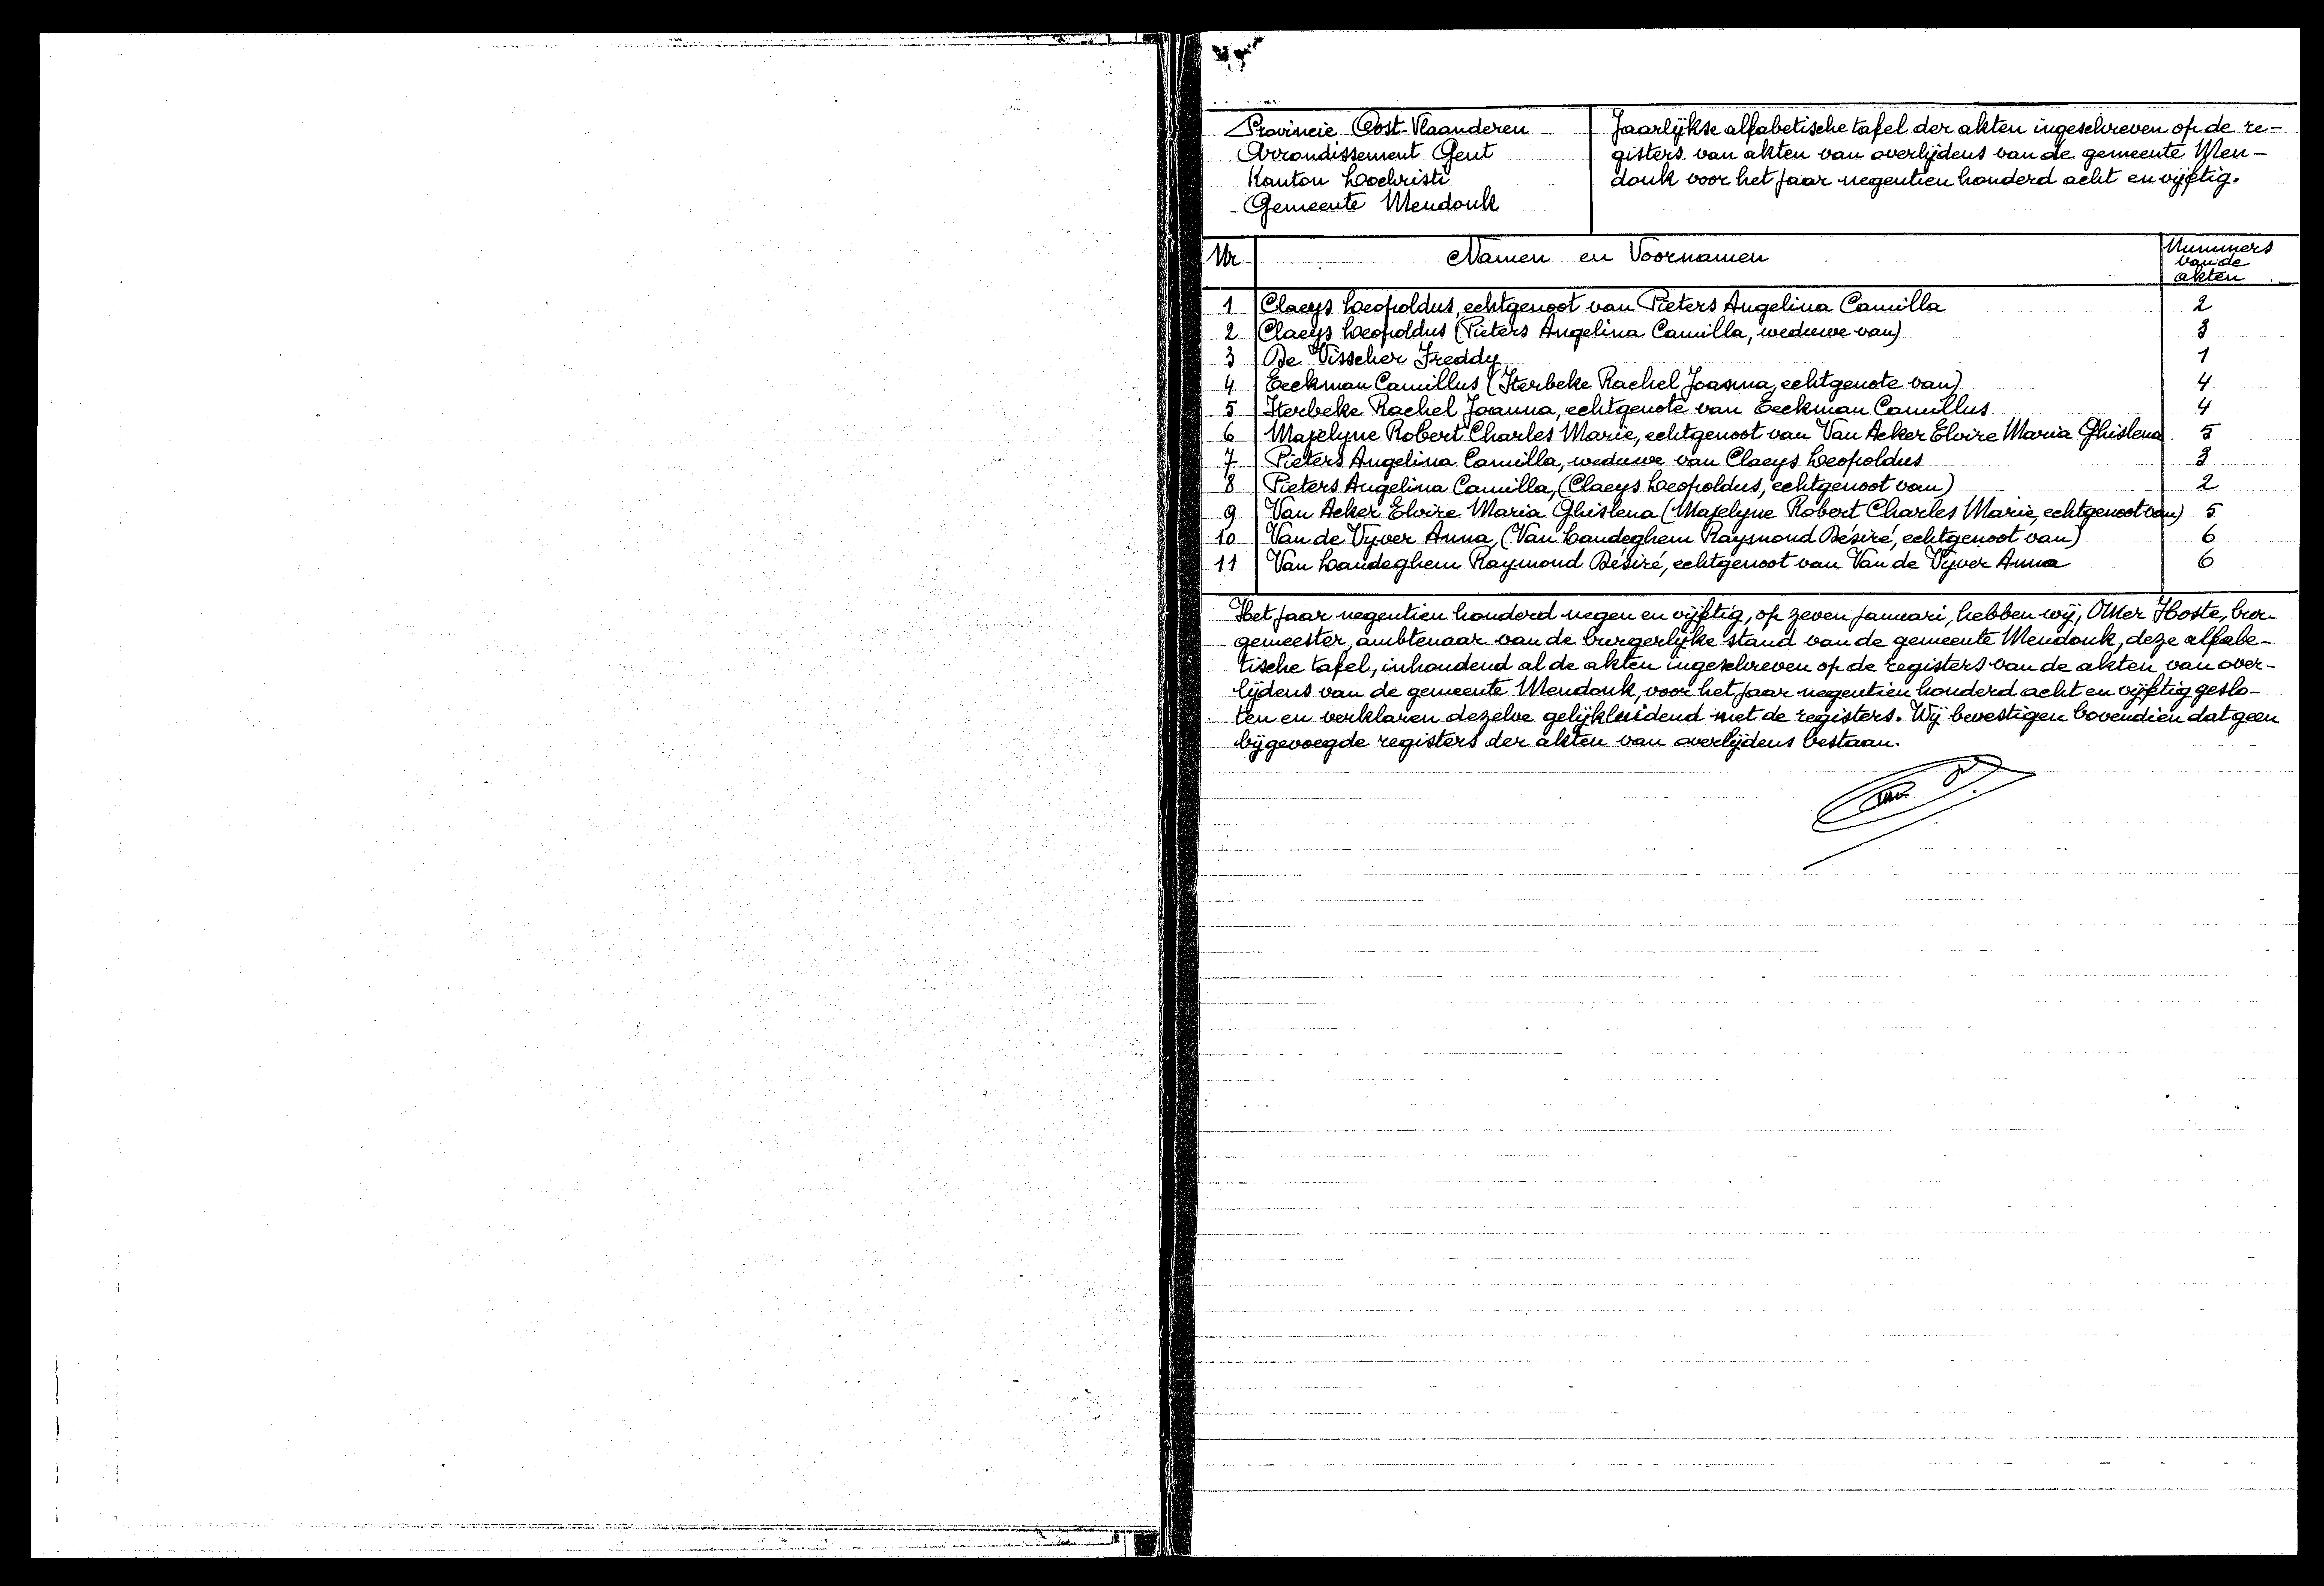 Provincie Oost-Vlaanderen
Arrondissement Gent
Kanton Lochristi
Gemeente Mendonk
Jaarlijkse alfabetische tafel der akten ingeschreven op de re-
gisters van akten van overlijdens van de gemeente Men-
donk voor het jaar negentien honderd acht en vijftig.
Nr Namen en Voornamen Nummers van de akten
1 Claeys Leopoldus, echtgenoot van Pieters Angelina Camilla 2
2 Claeys Leopoldus (Pieters Angelina Camilla, weduwe van) 3
3 De Visscher Freddy 1
4 Eeckman Camillus (Sterbeke Rachel Joanna, echtgenote van) 4
5 Sterbeke Rachel Joanna, echtgenote van Eeckman Camillus 4
6 Majelyne Robert Charles Marie, echtgenoot van Van Acker Elvire Maria Ghislena 5
7 Pieters Angelina Camilla, weduwe van Claeys Leopoldus 3
8 Pieters Angelina Camilla, (Claeys Leopoldus, echtgenoot van) 2
9 Van Acker Elvire Maria Ghislena (Majelyne Robert Charles Marie, echtgenoot van) 5
10 Van de Vyver Anna, (Van Landeghem Raymond Désiré, echtgenoot van) 6
11 Van Landeghem Raymond Désiré, echtgenoot van Van de Vyver Anna 6
Het jaar negentien honderd negen en vijftig, op zeven januari, hebben wij, Omer Hoste, bur-
gemeester, ambtenaar van de burgerlijke stand van de gemeente Mendonk, deze alfabe-
tische tafel, inhoudend al de akten ingeschreven op de registers van de akten van over-
lijdens van de gemeente Mendonk, voor het jaar negentien honderd acht en vijftig geslo-
ten en verklaren dezelve gelijkluidend met de registers. Wij bevestigen bovendien dat geen
bijgevoegde registers der akten van overlijdens bestaan.